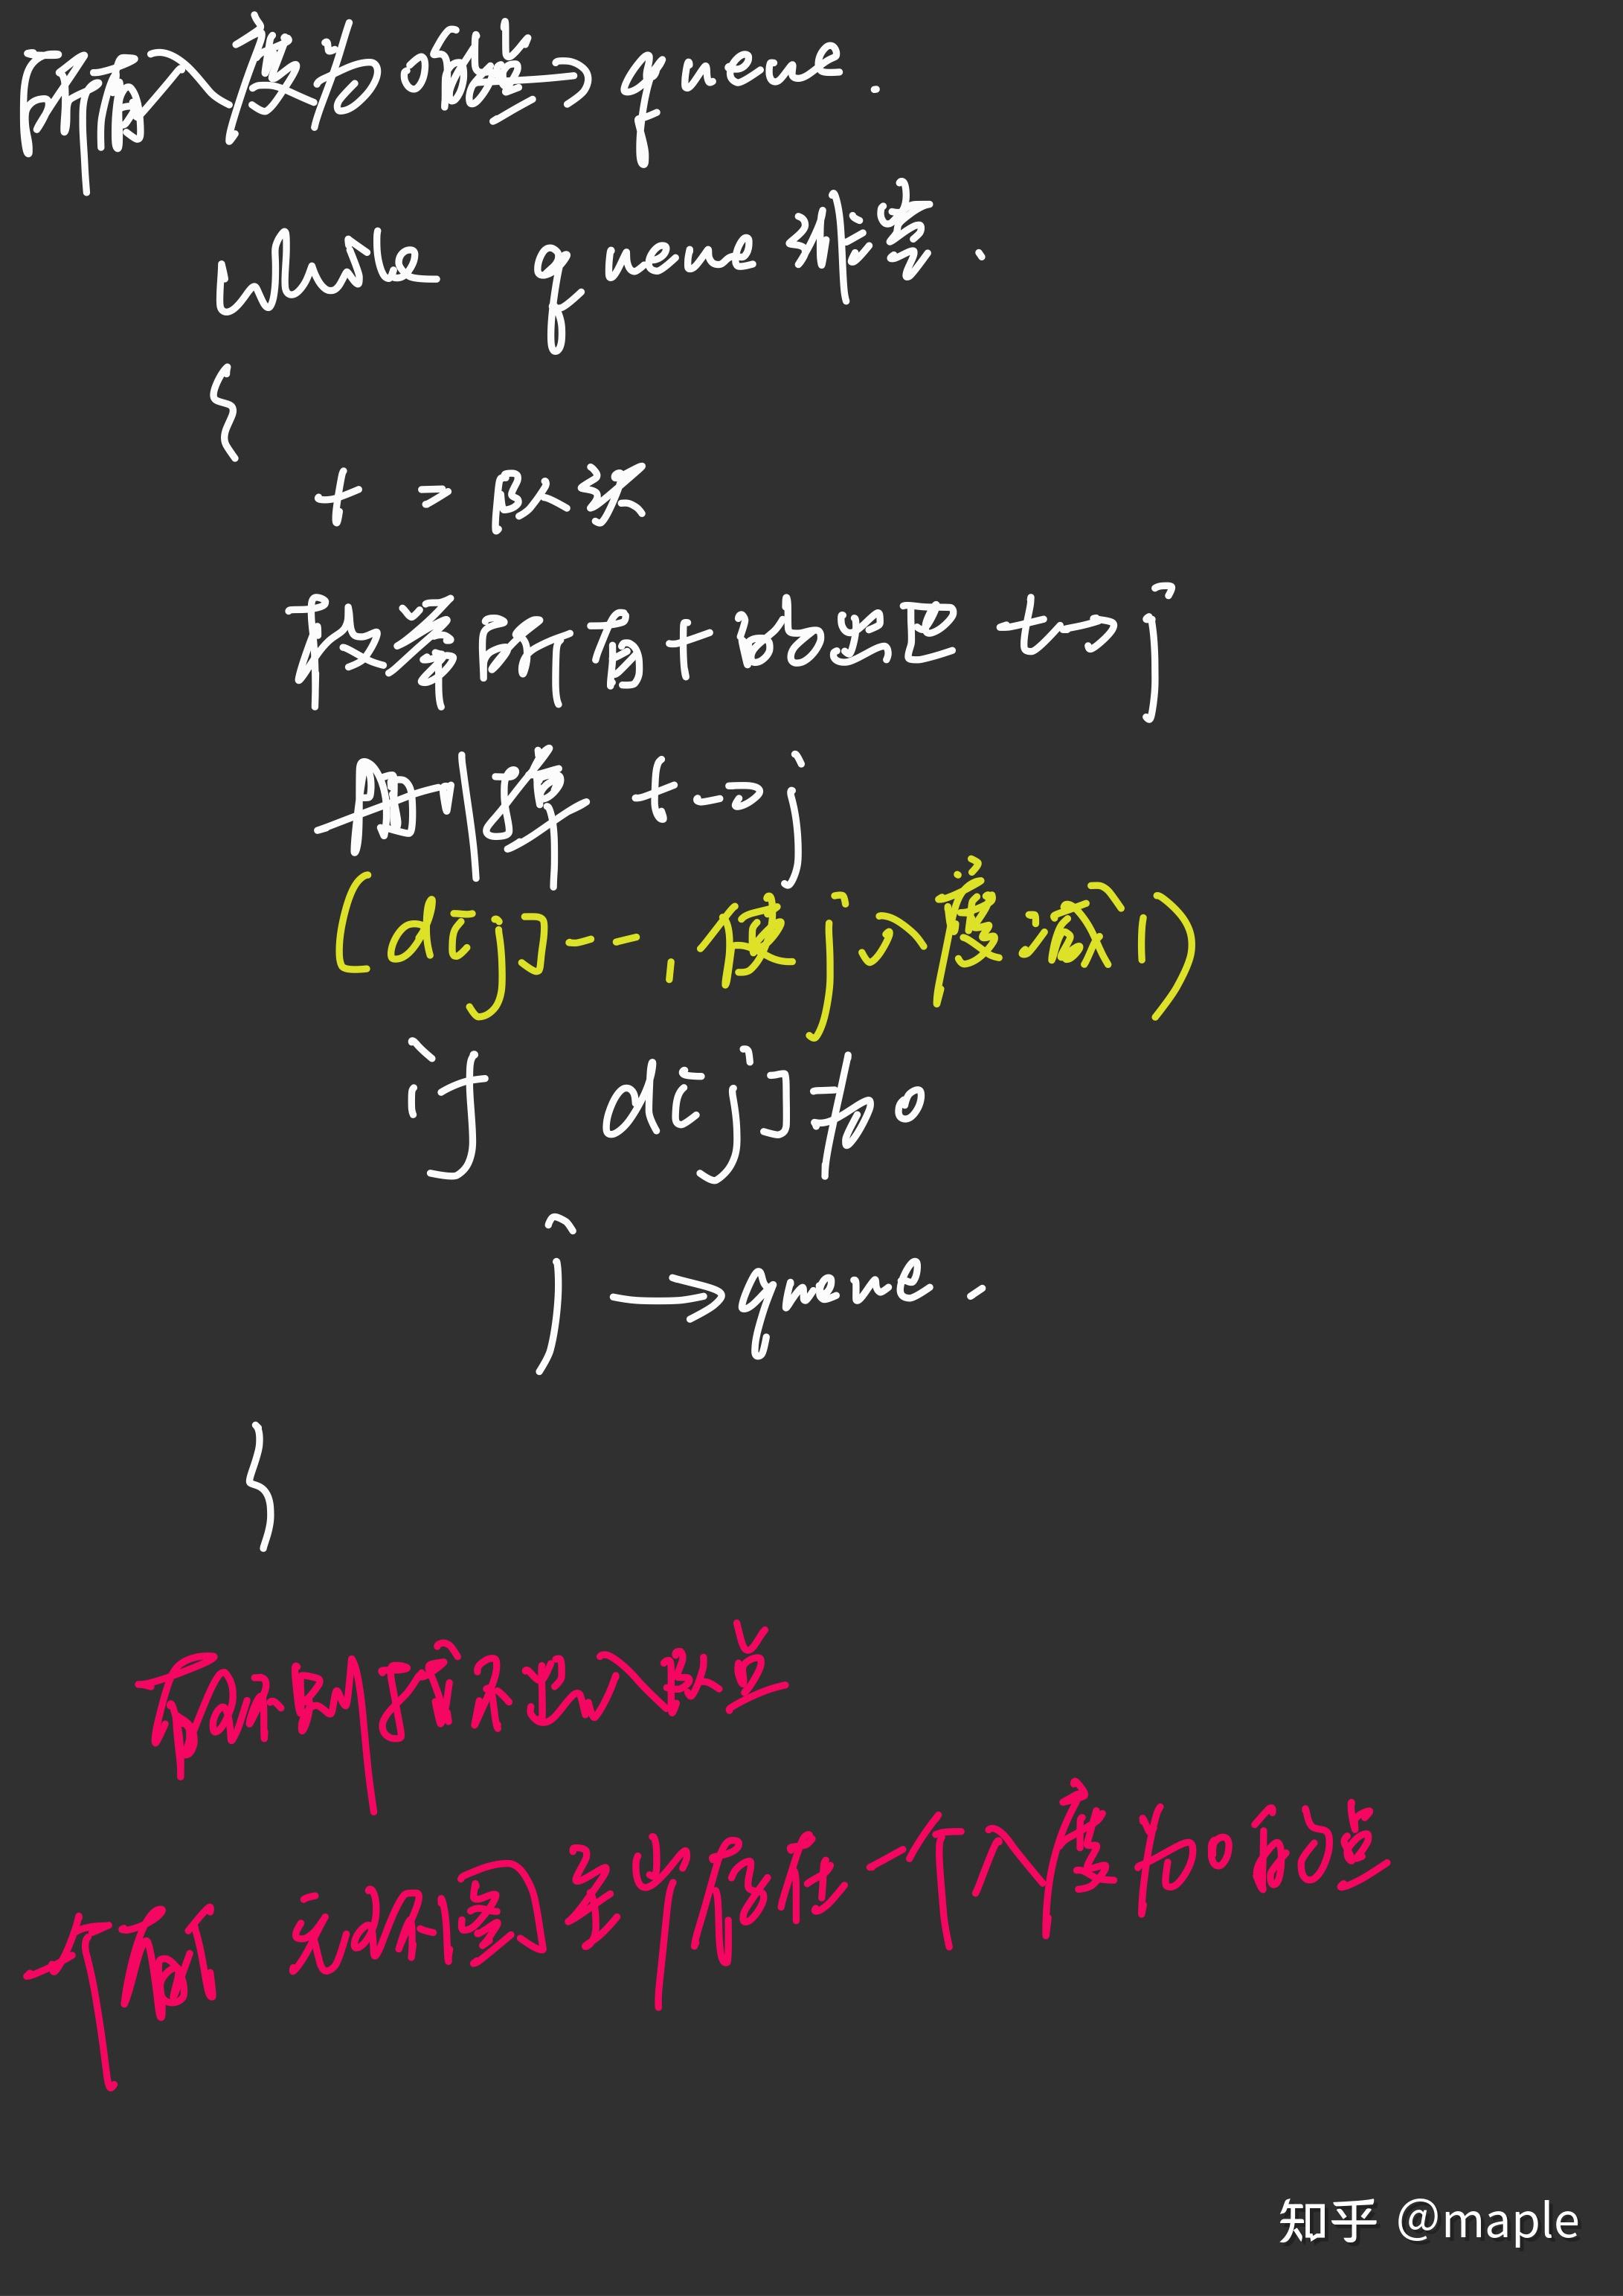 所有入度为0的点→queue.
while queue 非空.
{
t = 队头
枚举所有t的出边 t→j
删掉 t→j
(d[j]--, 使j入度减1)
if d[j]为0
j→queue.
}
有环则不存在入度为0
一个有向无环图至少存在一个入度为0的点
知乎 @maple